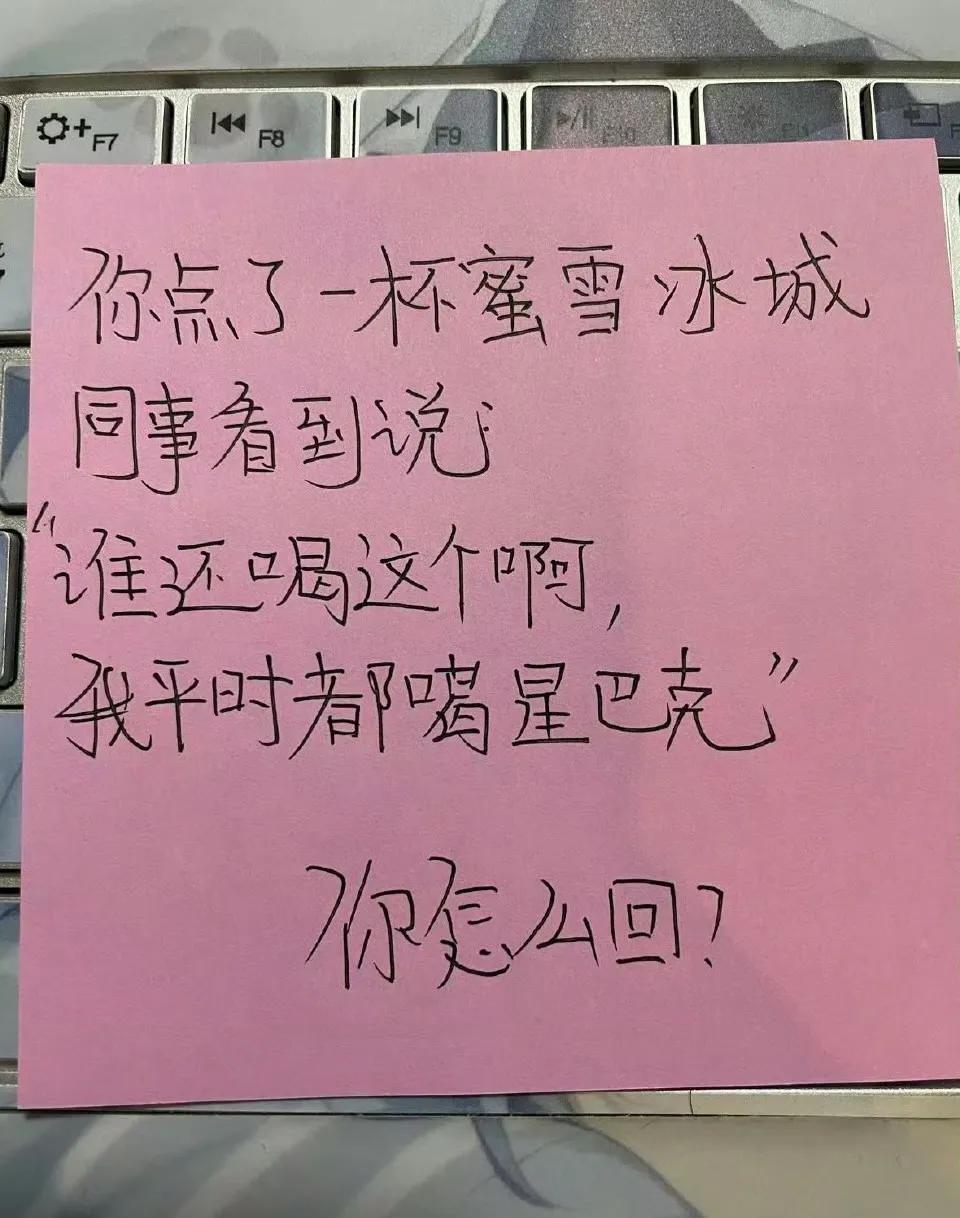 +F7
F8
F9
F10
F11
你点了一杯蜜雪冰城
同事看到说
“谁还喝这个啊,
我平时都喝星巴克”
你怎么回?